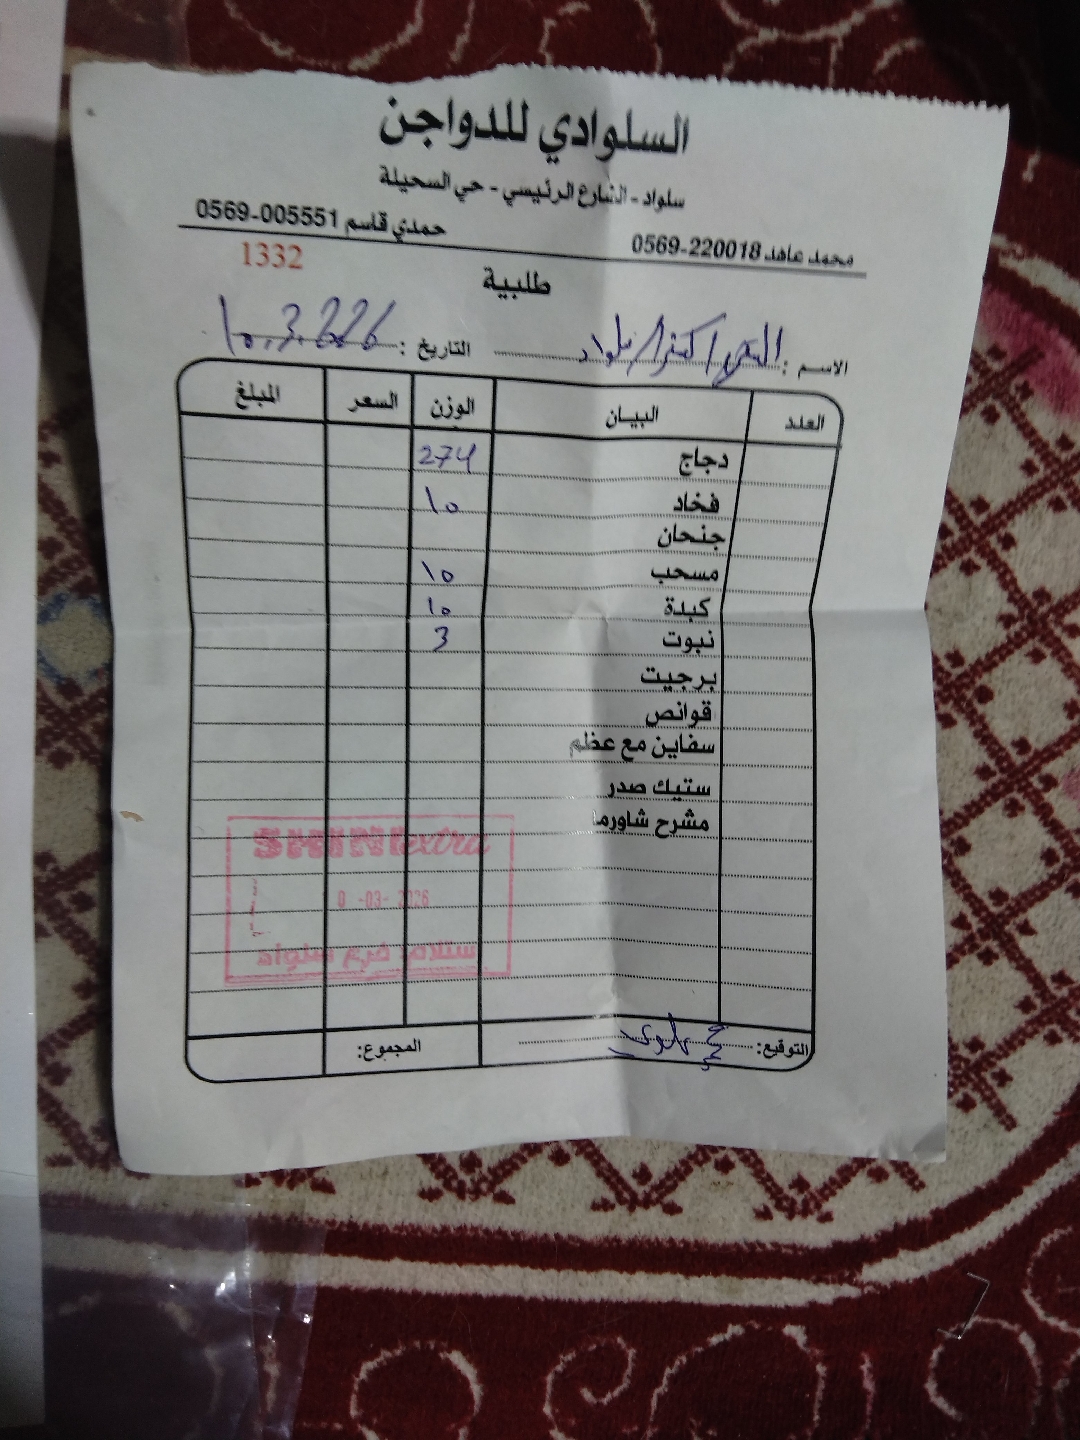 السلوادي للدواجن
سلواد - الشارع الرئيسي - حي السحيلة
محمد عاهد 220018-0569 حمدي قاسم 005551-0569
1332
طلبية
الاسم : اكسترا سلواد التاريخ : 10.3.2026
العدد البيان الوزن السعر المبلغ
دجاج 274
فخاد 10
جنحان
مسحب 10
كبدة 10
نبوت 3
برجيت
قوانص
سفاين مع عظم
ستيك صدر
مشرح شاورما
SHINI extra
0 -03- 2026
ستلام: فرع سلواد
التوقيع: المجموع: